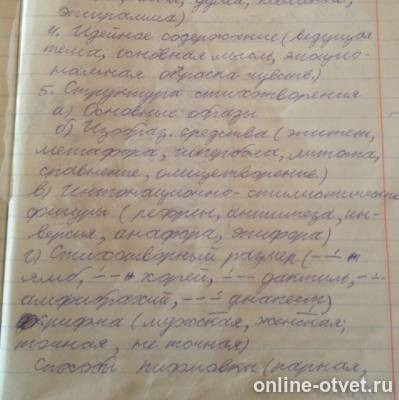 эпиграмма)
4. Идейное содержание (ведущая
тема, основная мысль, эмоцио-
нальная окраска чувств)
5. Структура стихотворения
а) Основные образы
б) Изобраз. средства (эпитет,
метафора, гипербола, литота,
сравнение, олицетворение)
в) Интонационно-стилистические
фигуры (рефрен, антитеза, ин-
версия, анафора, эпифора)
г) Стихотворный размер (
ямб, хорей, дактиль,
амфибрахий, анапест)
рифма (мужская, женская;
точная, не точная)
Способы рифмовки (парная,
online-otvet.ru